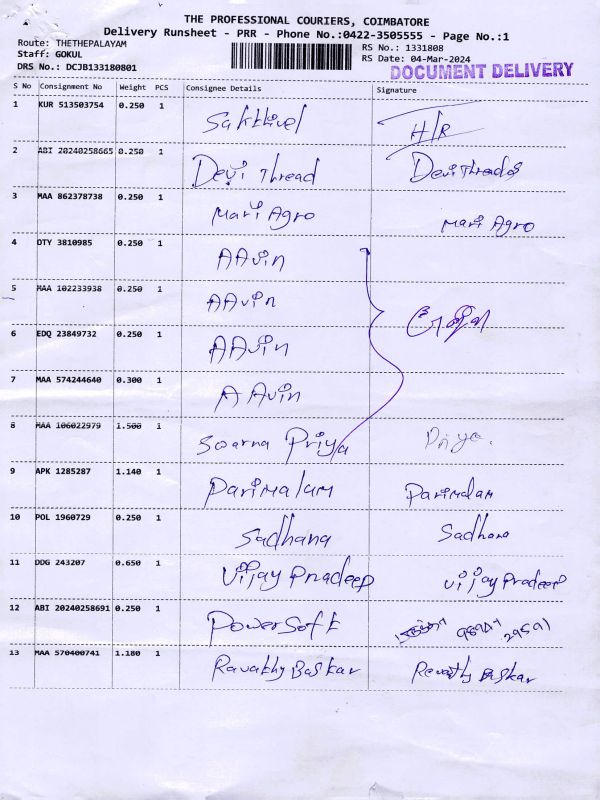 THE PROFESSIONAL COURIERS, COIMBATORE
Delivery Runsheet - PRR - Phone No.:0422-3505555 - Page No.:1
Route: THETHEPALAYAM
RS No.: 1331808
Staff: GOKUL
RS Date: 04-Mar-2024
DRS No.: DCJB133180801
DOCUMENT DELIVERY
S No Consignment No Weight PCS Consignee Details Signature
1 KUR 513503754 0.250 1 Sakthivel H/R
2 ABI 20240258665 0.250 1 Devi Thread Devi Threads
3 MAA 862378738 0.250 1 Mari Agro Mari Agro
4 OTY 3810985 0.250 1 AAvin
5 MAA 102233938 0.250 1 AAvin
6 EDQ 23849732 0.250 1 AAvin
7 MAA 574244640 0.300 1 AAvin
8 MAA 106022979 1.500 1 Swarna Priya Priya.
9 APK 1285287 1.140 1 Parimalam Parimalam
10 POL 1960729 0.250 1 Sadhana Sadhana
11 DDG 243207 0.650 1 Vijay Pradeep Vijay Pradeep
12 ABI 20240258691 0.250 1 PowerSoft
13 MAA 570400741 1.180 1 Ravathy Baskar Revathy Baskar